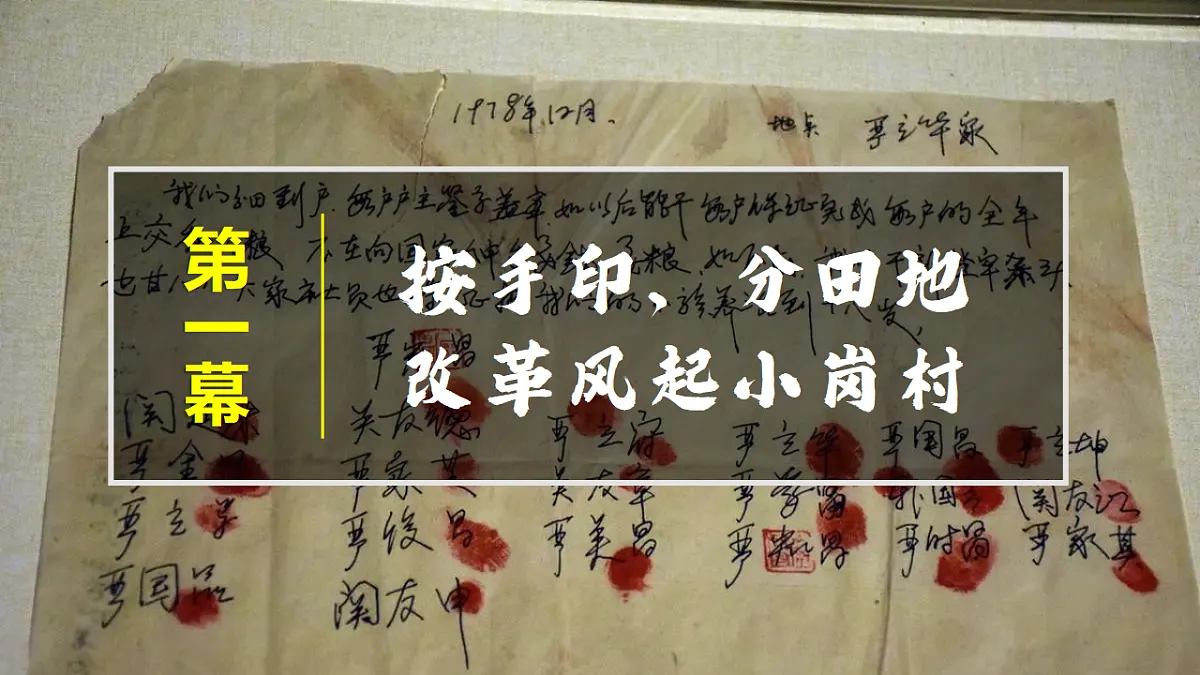 1978年12月. 地点 严立华家
我们分田到户,每户户主签字盖章,如以后能干,每户保证完成每户的全年
上交 粮。不在向国家伸手 钱 粮,如
也甘 大家社员也 我们的小孩养 到 八岁,
第一幕
按手印,分田地
改革风起小岗村
严宏昌
关廷珠 关友德 严立符 严立华 严国昌 严立坤
严金昌 严家芝 关友章 严学昌 韩国云 关友江
严立学 严俊昌 严美昌 严宏昌 严付昌 严家其
严国品 关友申